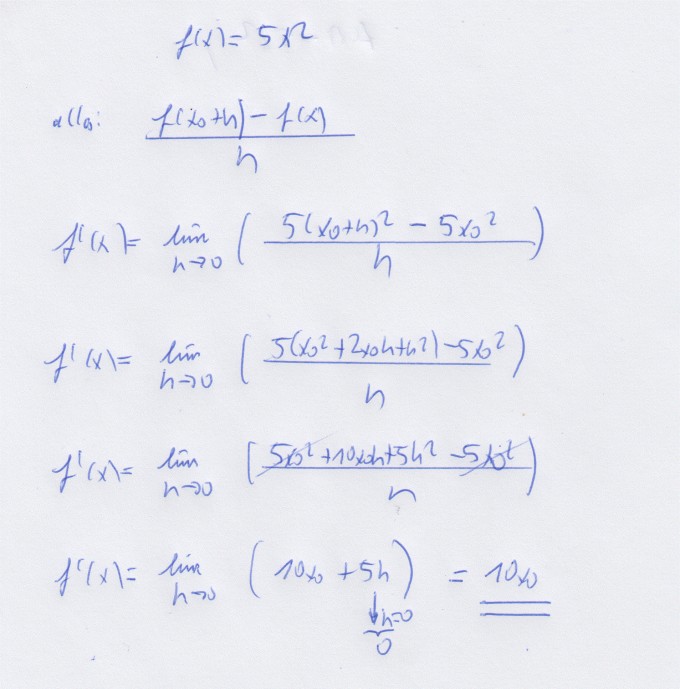 f(x) = 5x²
allg: (f(x₀+h) - f(x)) / h
f'(x) = lim h→0 ( (5(x₀+h)² - 5x₀²) / h )
f'(x) = lim h→0 ( (5(x₀²+2x₀h+h²) - 5x₀²) / h )
f'(x) = lim h→0 ( (5x₀²+10x₀h+5h² - 5x₀²) / h )
f'(x) = lim h→0 ( 10x₀ + 5h ) = 10x₀
↓ h=0
0